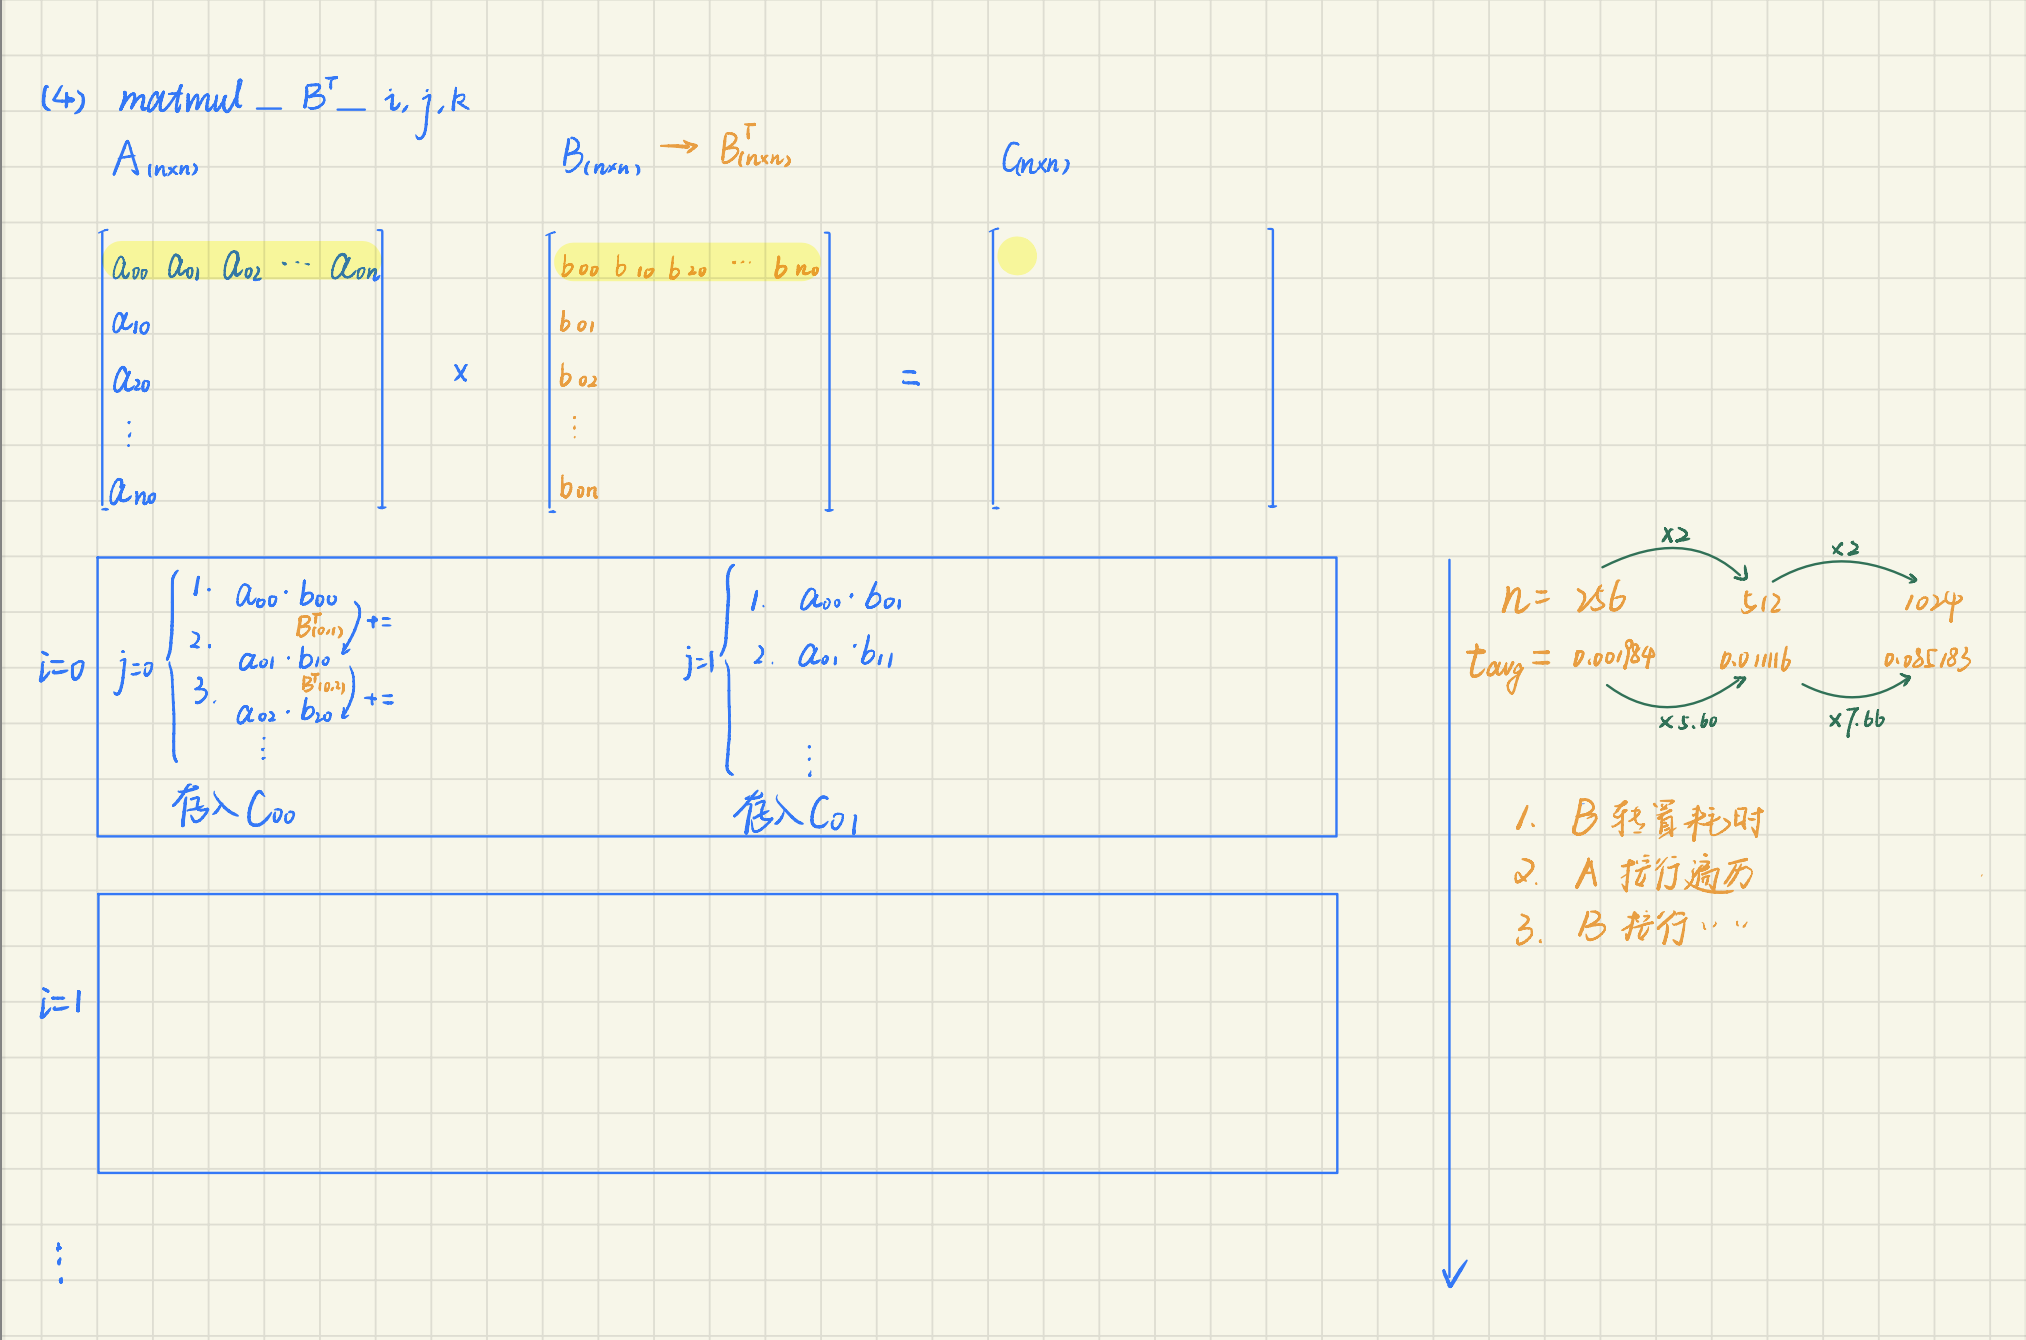 (4) matmul _ Bᵀ _ i, j, k
A(n×n) B(n×n) → Bᵀ(n×n) C(n×n)
a00 a01 a02 ⋯ a0n b00 b10 b20 ⋯ bn0
a10 b01
a20 × b02 =
⋮ ⋮
an0 b0n
i=0 j=0
1. a00 · b00
Bᵀ(0,1) +=
2. a01 · b10
Bᵀ(0,2) +=
3. a02 · b20
⋮
存入C00
j=1
1. a00 · b01
2. a01 · b11
⋮
存入C01
i=1
⋮
×2 ×2
n= 256 512 1024
tavg = 0.001984 0.011116 0.085183
×5.60 ×7.66
1. B 转置耗时
2. A 按行遍历
3. B 按行⋯⋯